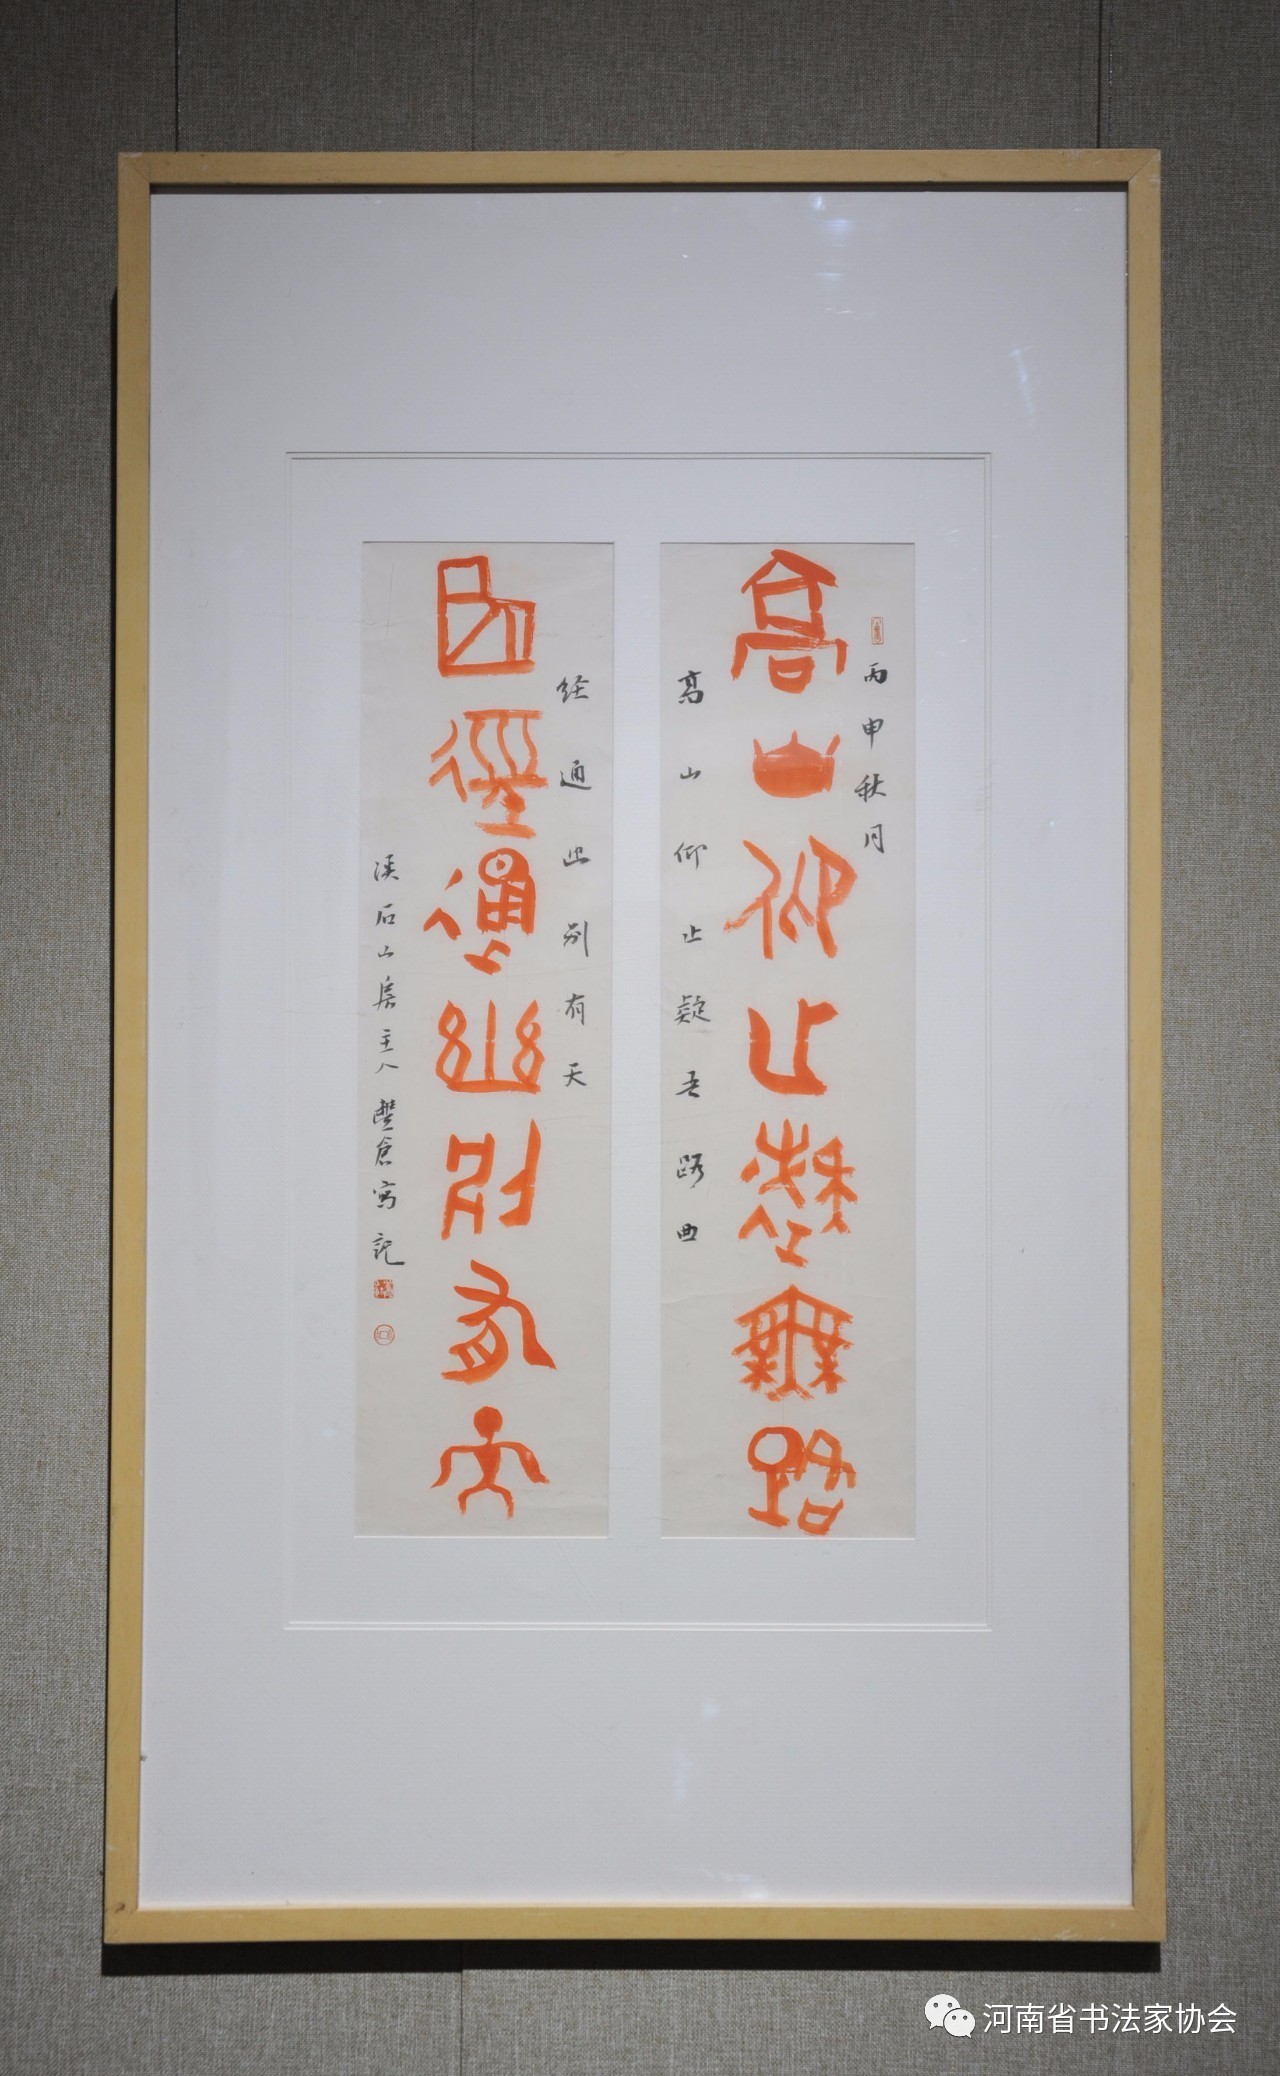 丙申秋月
高山仰止疑無路
高山仰止疑无路曲
径通幽别有天
曲徑通幽別有天
溪石山居主人豐倉寫記
河南省书法家协会